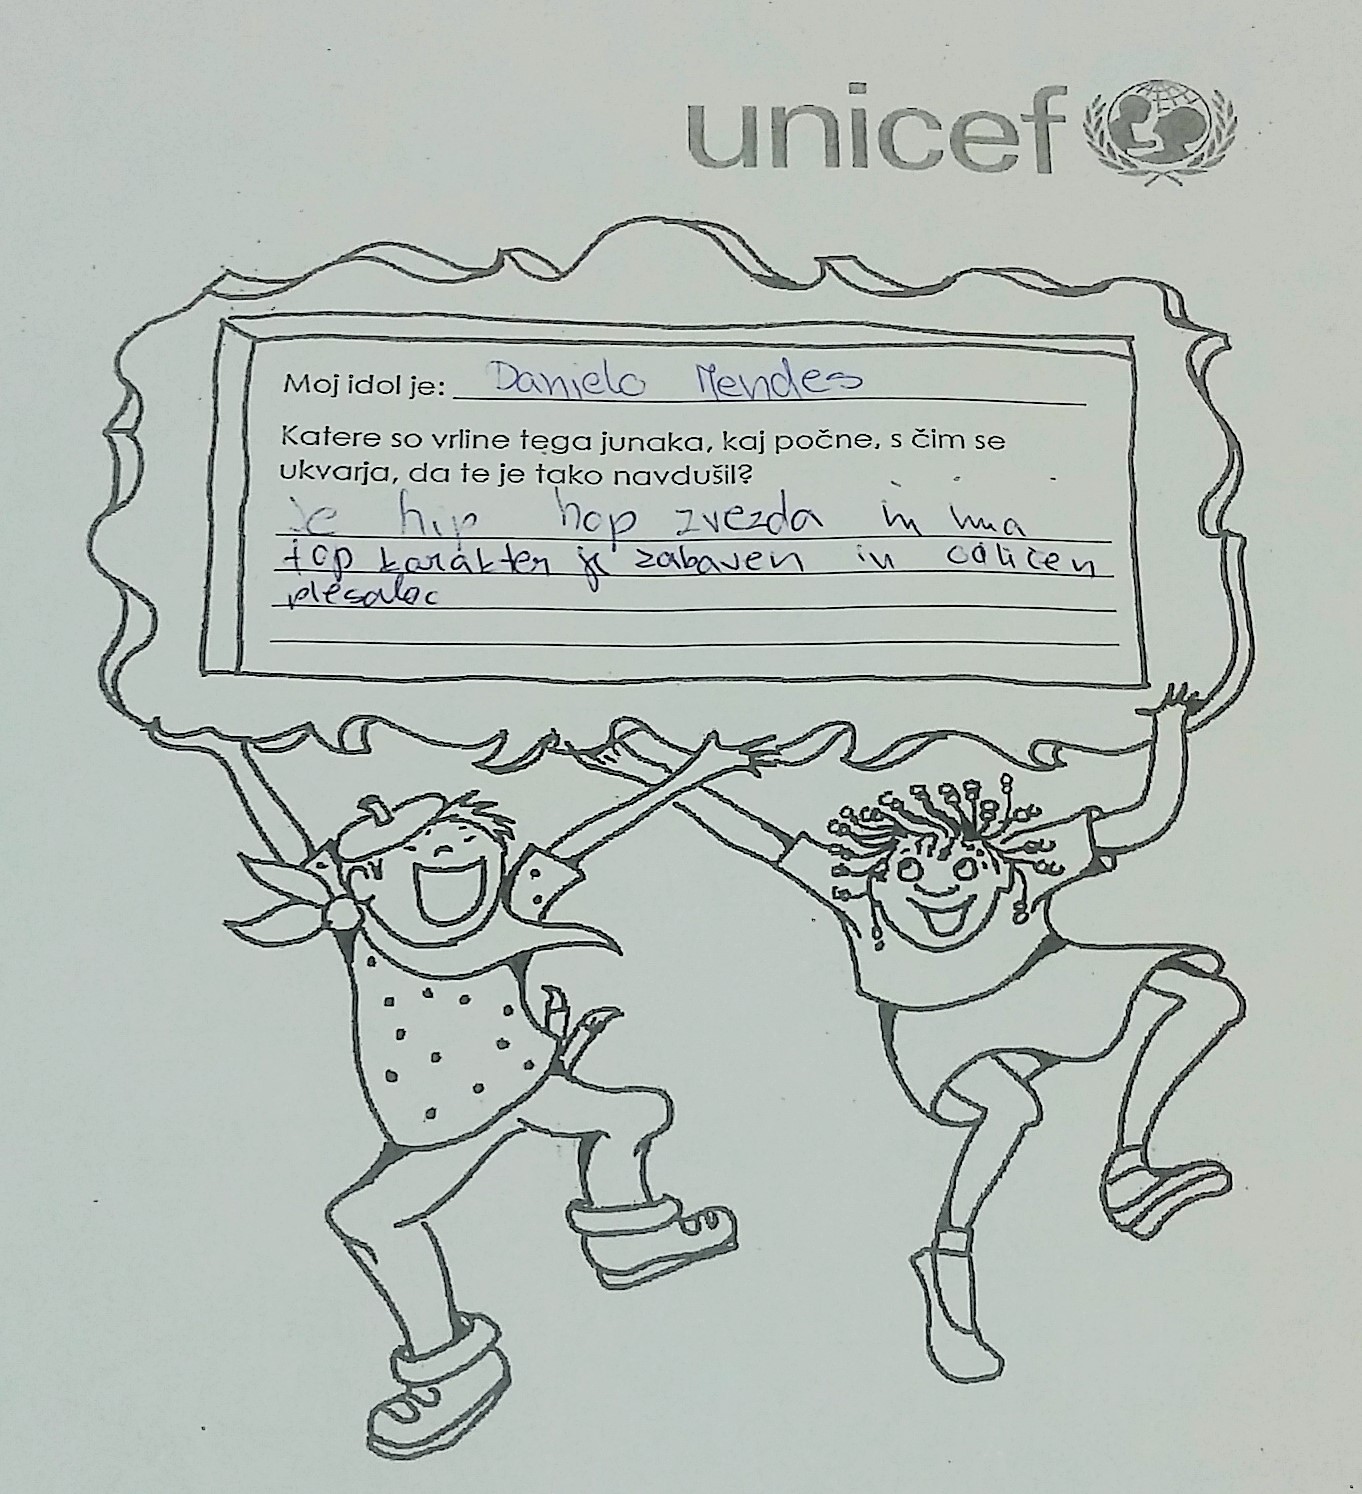 unicef
Moj idol je: Danielo Mendes
Katere so vrline tega junaka, kaj počne, s čim se
ukvarja, da te je tako navdušil?
Je hip hop zvezda in ima
top karakter je zabaven in odličen
plesalec